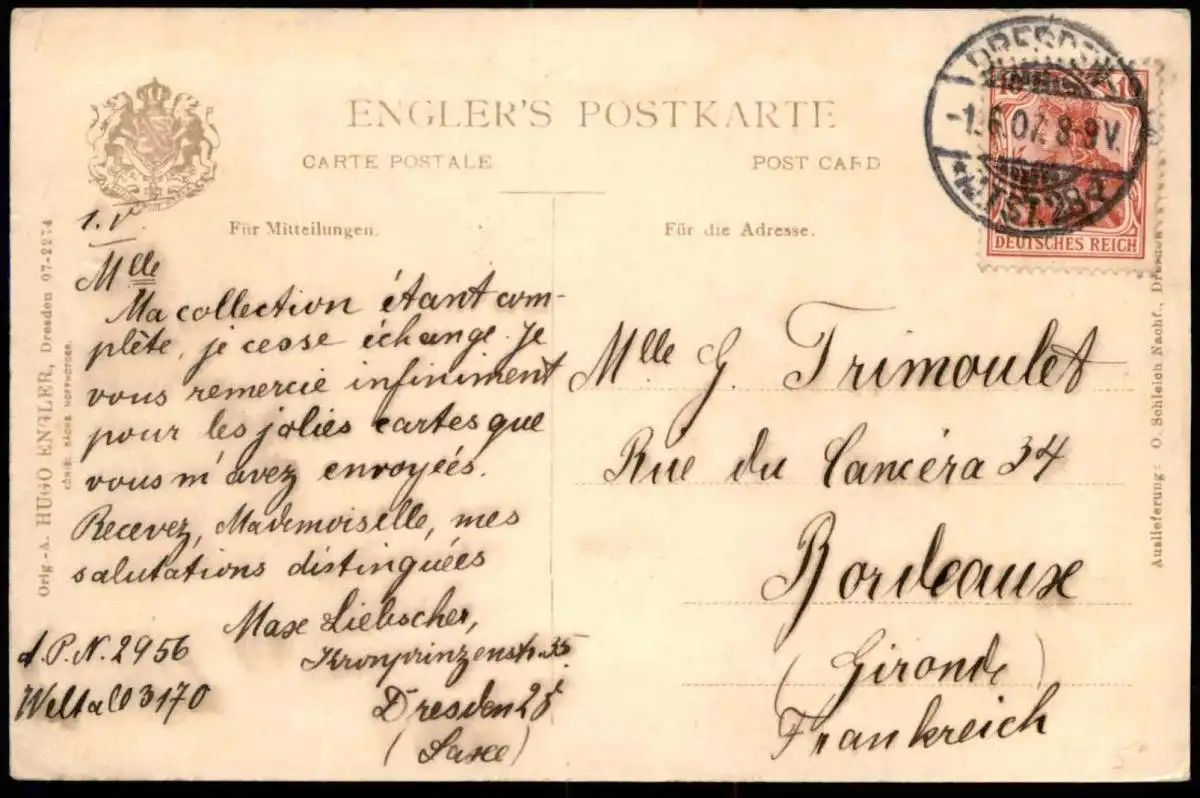 ENGLER'S POSTKARTE
CARTE POSTALE
POST CARD
Für Mitteilungen.
Für die Adresse.
DRESDEN
-1.6.07. 8-9V.
10
DEUTSCHES REICH
Orig.-A. HUGO ENGLER, Dresden 07-2274
KÖNIGL. SÄCHS. HOFPHOTOGR.
Mlle
Ma collection étant com-
plète, je cesse échange. Je
vous remercie infiniment
pour les jolies cartes que
vous m'avez envoyées.
Recevez, Mademoiselle, mes
salutations distinguées
Max Liebscher,
Kronprinzenstr. 35
Dresden 28
(Saxe)
d.P.N. 2956
Weltall 3170
Mlle G. Trimoulet
Rue du Cancéra 34
Bordeaux
(Gironde)
Frankreich
Auslieferung: O. Schleich Nachf., Dresden